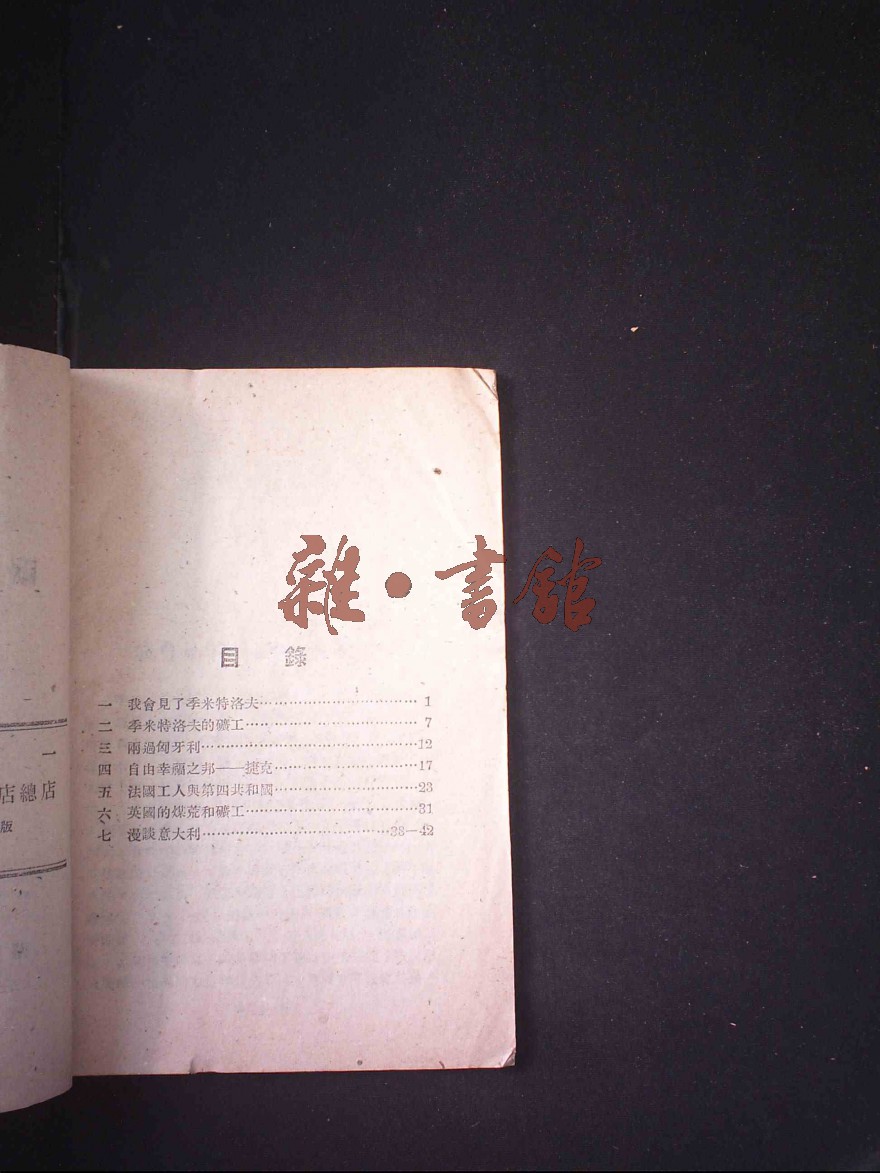 雜·書館
目　錄
一　我會見了季米特洛夫……………………………1
二　季米特洛夫的礦工……………………………7
三　兩過匈牙利……………………………12
四　自由幸福之邦——捷克……………………………17
五　法國工人與第四共和國……………………………23
六　英國的煤荒和礦工……………………………31
七　漫談意大利……………………………38—42
一
店總店
版